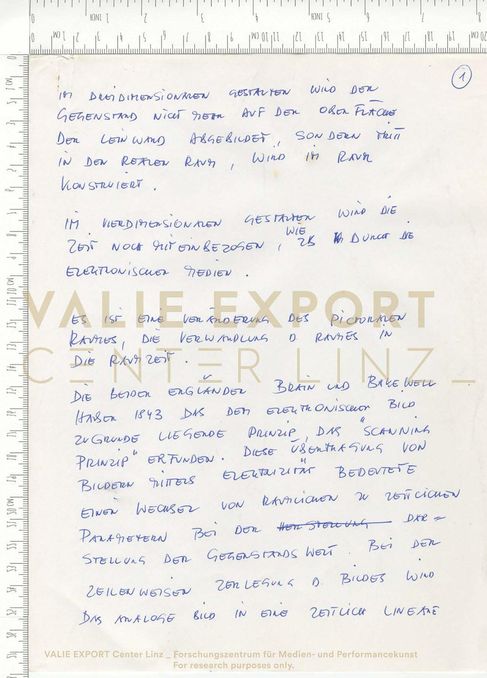 1
IM DREIDIMENSIONALEN GESTALTEN WIRD DER
GEGENSTAND NICHT MEHR AUF DER OBERFLÄCHE
DER LEINWAND ABGEBILDET, SONDERN TRITT
IN DEN REALEN RAUM, WIRD IM RAUM
KONSTRUIERT.
IM VIERDIMENSIONALEN GESTALTEN WIRD DIE
ZEIT NOCH MITEINBEZOGEN, WIE ZB DURCH DIE
ELEKTRONISCHEN MEDIEN.
VALIE EXPORT
CENTER LINZ_
ES IST EINE VERÄNDERUNG DES PICTORALEN
RAUMES, DIE VERWANDLUNG D RAUMES IN
DIE RAUMZEIT.
DIE BEIDEN ENGLÄNDER BRAIN UND BAKEWELL
HABEN 1843 DAS DEM ELEKTRONISCHEN BILD
ZUGRUNDE LIEGENDE PRINZIP, DAS "SCANNING
PRINZIP" ERFUNDEN. DIESE ÜBERTRAGUNG VON
BILDERN MITTELS ELEKTRIZITÄT BEDEUTETE
EINEN WECHSEL VON RÄUMLICHEN ZU ZEITLICHEN
PARAMETERN BEI DER HERSTELLUNG DAR=
STELLUNG DER GEGENSTANDSWELT. BEI DER
ZEILENWEISEN ZERLEGUNG D BILDES WIRD
DAS ANALOGE BILD IN EINE ZEITLICH LINEARE
VALIE EXPORT Center Linz _ Forschungszentrum für Medien- und Performancekunst
For research purposes only.